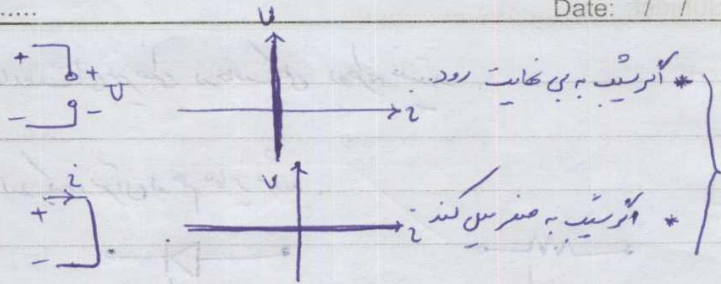 Date: / /
* اگر شیب به بی نهایت رود.
+ - + U -
U
i
* اگر شیب به صفر میل کند
i + -
U
i